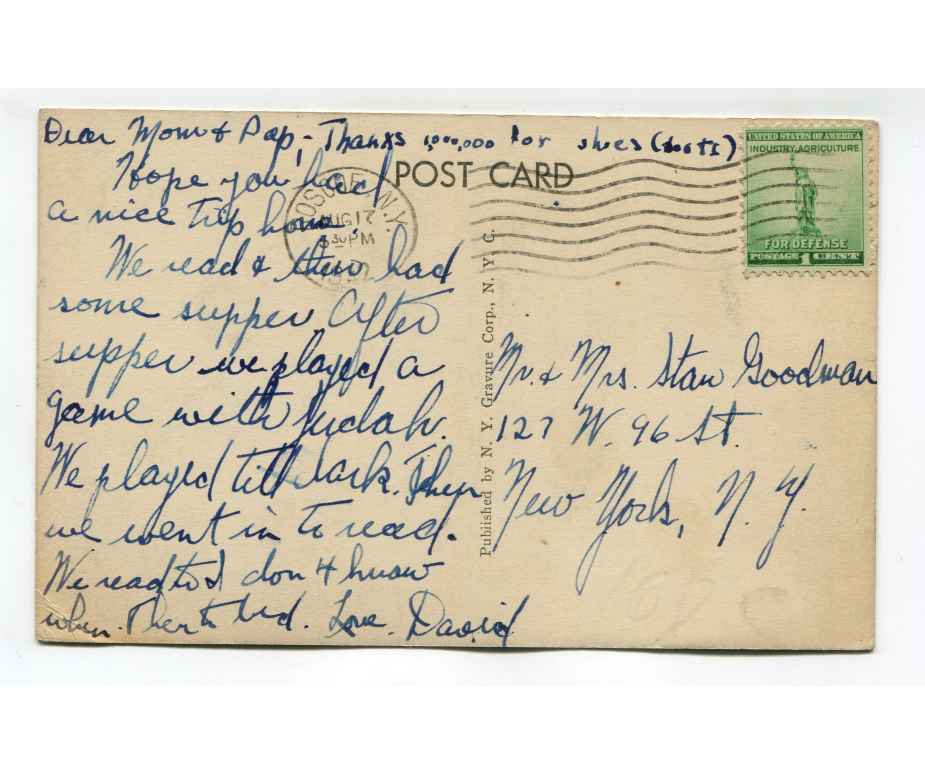 Dear Mom & Pop, - Thanks 1,000,000 for shoes (boots)
Hope you had
a nice trip home.
We read & then had
some supper. After
supper we played a
game with Judah.
We played till dark. Then
we went in to read.
We read to I don't know
when. Then to bed. Love, David
POST CARD
ROSCOE, N.Y.
AUG 17
30 PM
UNITED STATES OF AMERICA
INDUSTRY AGRICULTURE
FOR DEFENSE
POSTAGE 1 CENT
Published by N. Y. Gravure Corp., N. Y. C.
Mr. & Mrs. Stan Goodman
127 W. 96 St.
New York, N. Y.